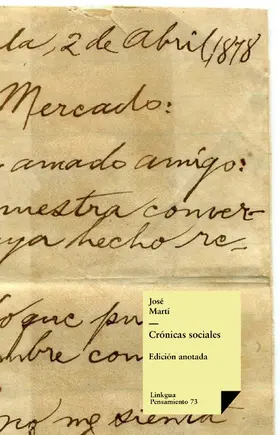 la, 2 de Abril, 1878
Mercado:
amado amigo:
nuestra conver-
aya hecho re-
lo que pu
mbre con
no me sienta
José
Martí
Crónicas sociales
Edición anotada
Linkgua
Pensamiento 73